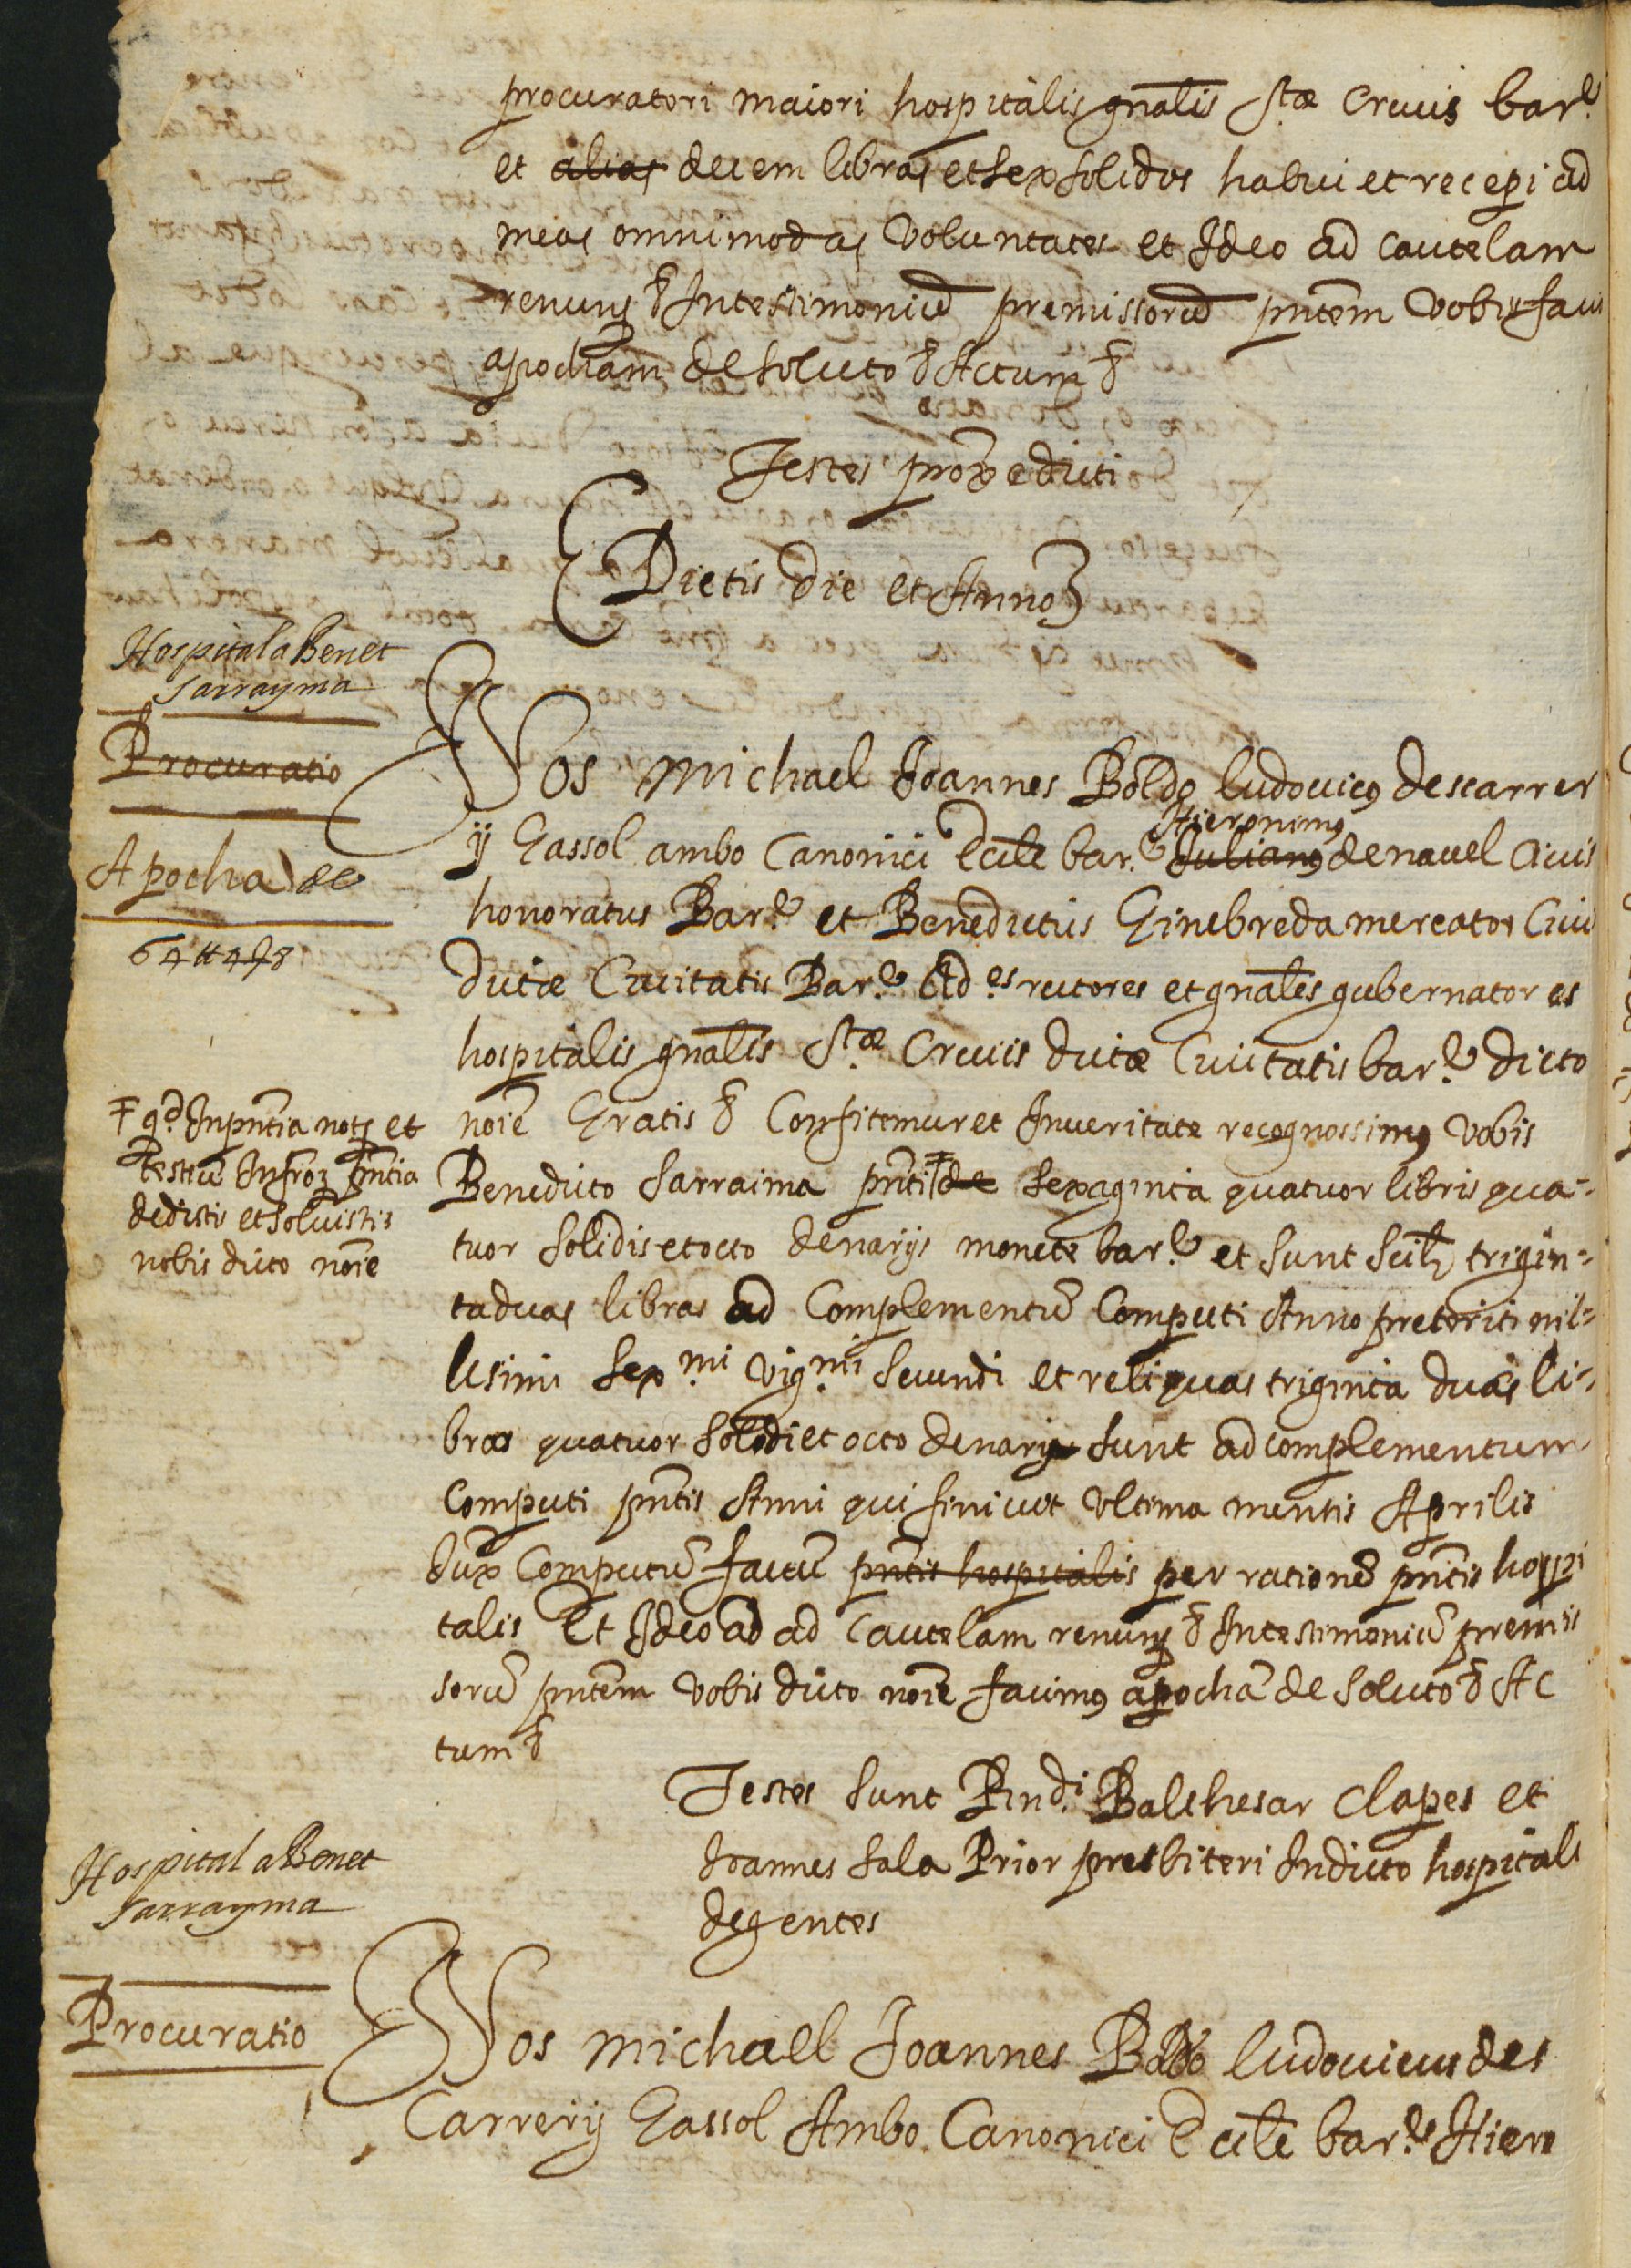 procuratori maiori hospitalis gnalis Stæ Crucis bar.e
et alias decem libras et sex solidos habui et recepi ad
meas omnimodas voluntates et Ideo ad cautelam
renuns & In testimoniu premissoru pntem vobis facio
apocham de soluto & Actum &
Testes proxe dicti
Dictis die et Anno
Hospital a Benet
Sarrayma
Procuratio
Apocha de
64 ll 4 s 8
Nos Michael Joannes Boldo ludovicus descarrer
ij Gassol ambo Canonici Ecile bar.e Julianus Hieronimus denavel Civis
honoratus Bar.e et Benedictus Ginebreda mercator Civis
dictæ Civitatis Bar.e Ad.es rectores et gnales gubernatores
hospitalis gnalis S.tæ Crucis dictæ Civitatis bar.e dicto
noie Gratis & Confitemur et In veritate recognossimus vobis
Benedicto Sarraima pnti de sexaginta quatuor libris qua-
tuor solidis et octo denarijs monete bar.e et sunt scilt trigin-
ta duas libras ad Complementu Computi Anno preteriti mil-
lesimi sex.mi vig.mi secundi et reliquas triginta duas li-
bras quatuor solidi et octo denarijs sunt ad complementum
Computi pntis Anni qui finivit ultima mensis Aprilis
iux Computu factu pntis hospitalis per rationem pntis hospi
talis Et Ideo ad ad Cautelam renuns & In testimoniu premis
soru pntem vobis dicto noie facimus apocha de soluto & Ac
tum &
qd In pntia nots et
testiu Infroz pntia
dedistis et solvistis
nobis dicto noie
Testes sunt Rnd.i Balthesar Clapes et
Joannes Sala Prior presbiteri In dicto hospitali
degentes
Hospital a Benet
Sarrayma
Procuratio
Nos Michael Joannes Boldo ludovicus des
Carrerij Gassol Ambo Canonici Ecile bar.e Hiero